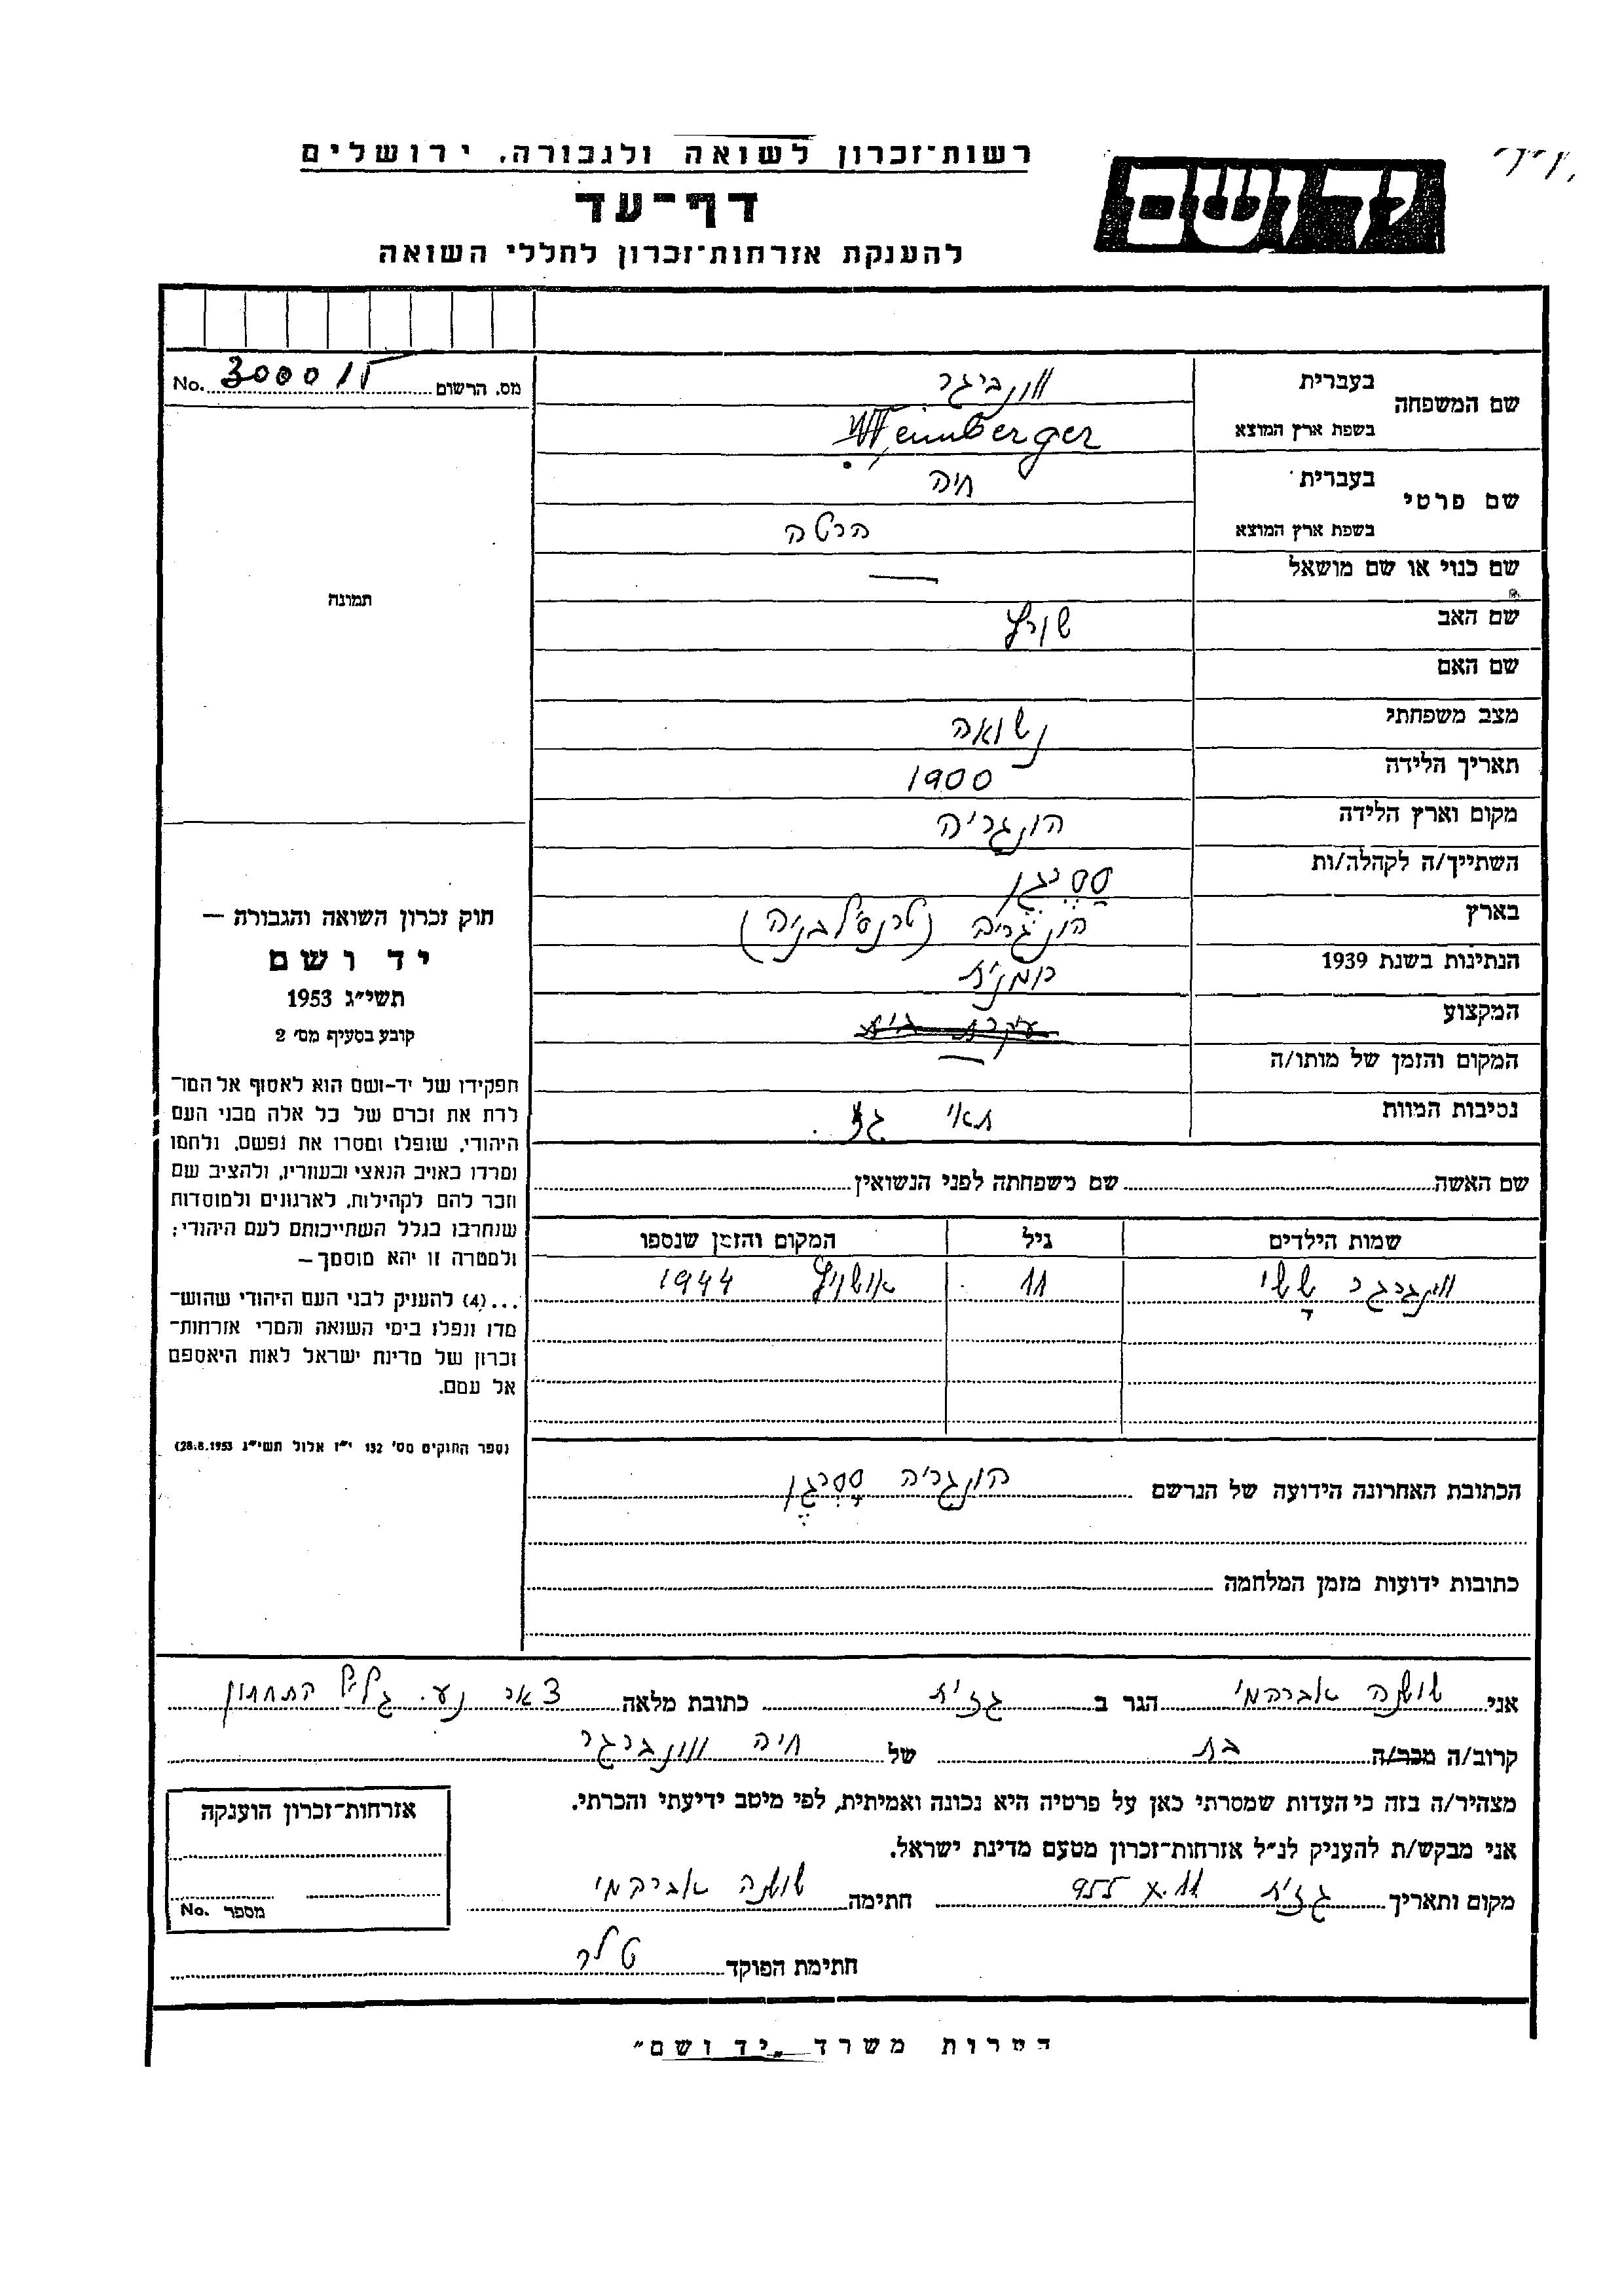 רשות־זכרון לשואה ולגבורה, ירושלים
יד ושם
דף־עד
להענקת אזרחות־זכרון לחללי השואה
מס. הרשום No. 3000
שם המשפחה
בעברית
בשפת ארץ המוצא Weinberger
שם פרטי
בעברית חיה
בשפת ארץ המוצא הרטה
שם כנוי או שם מושאל —
שם האב שורץ
שם האם
מצב משפחתי נשואה
תאריך הלידה 1900
מקום וארץ הלידה הונגריה
השתייך/ה לקהלה/ות ססריגן
בארץ הונגריה (טרנסילבניה)
הנתינות בשנת 1939 רומנית
המקצוע עקרת בית
המקום והזמן של מותו/ה —
נסיבות המוות תאי גז.
שם האשה שם משפחתה לפני הנשואין
שמות הילדים גיל המקום והזמן שנספו
וינברגר ששי 11 אושויץ 1944
הכתובת האחרונה הידועה של הנרשם הונגריה ססריגן
כתובות ידועות מזמן המלחמה
תמונה
חוק זכרון השואה והגבורה —
יד ושם
תשי״ג 1953
קובע בסעיף מס׳ 2
תפקידו של יד-ושם הוא לאסוף אל המו־
לדת את זכרם של כל אלה מבני העם
היהודי, שנפלו ומסרו את נפשם, נלחמו
ומרדו באויב הנאצי ובעוזריו, ולהציב שם
וזכר להם לקהילות, לארגונים ולמוסדות
שנחרבו בגלל השתייכותם לעם היהודי;
ולמטרה זו יהא מוסמך —
...(4) להעניק לבני העם היהודי שהוש־
מדו ונפלו בימי השואה והמרי אזרחות־
זכרון של מדינת ישראל לאות היאספם
אל עמם.
(ספר החוקים מס׳ 132 י״ז אלול תשי״ג 28.8.1953)
אני שושנה אברהמי הגר ב גזית כתובת מלאה דאר נע. גליל התחתון
קרוב/ה מכר/ה בת של חיה וונברגר
מצהיר/ה בזה כי העדות שמסרתי כאן על פרטיה היא נכונה ואמיתית, לפי מיטב ידיעתי והכרתי.
אני מבקש/ת להעניק לנ״ל אזרחות־זכרון מטעם מדינת ישראל.
מקום ותאריך גזית 11.X 955 חתימה שושנה אברהמי
חתימת הפוקד טלר
אזרחות־זכרון הוענקה
מספר No.
משרד „יד ושם״